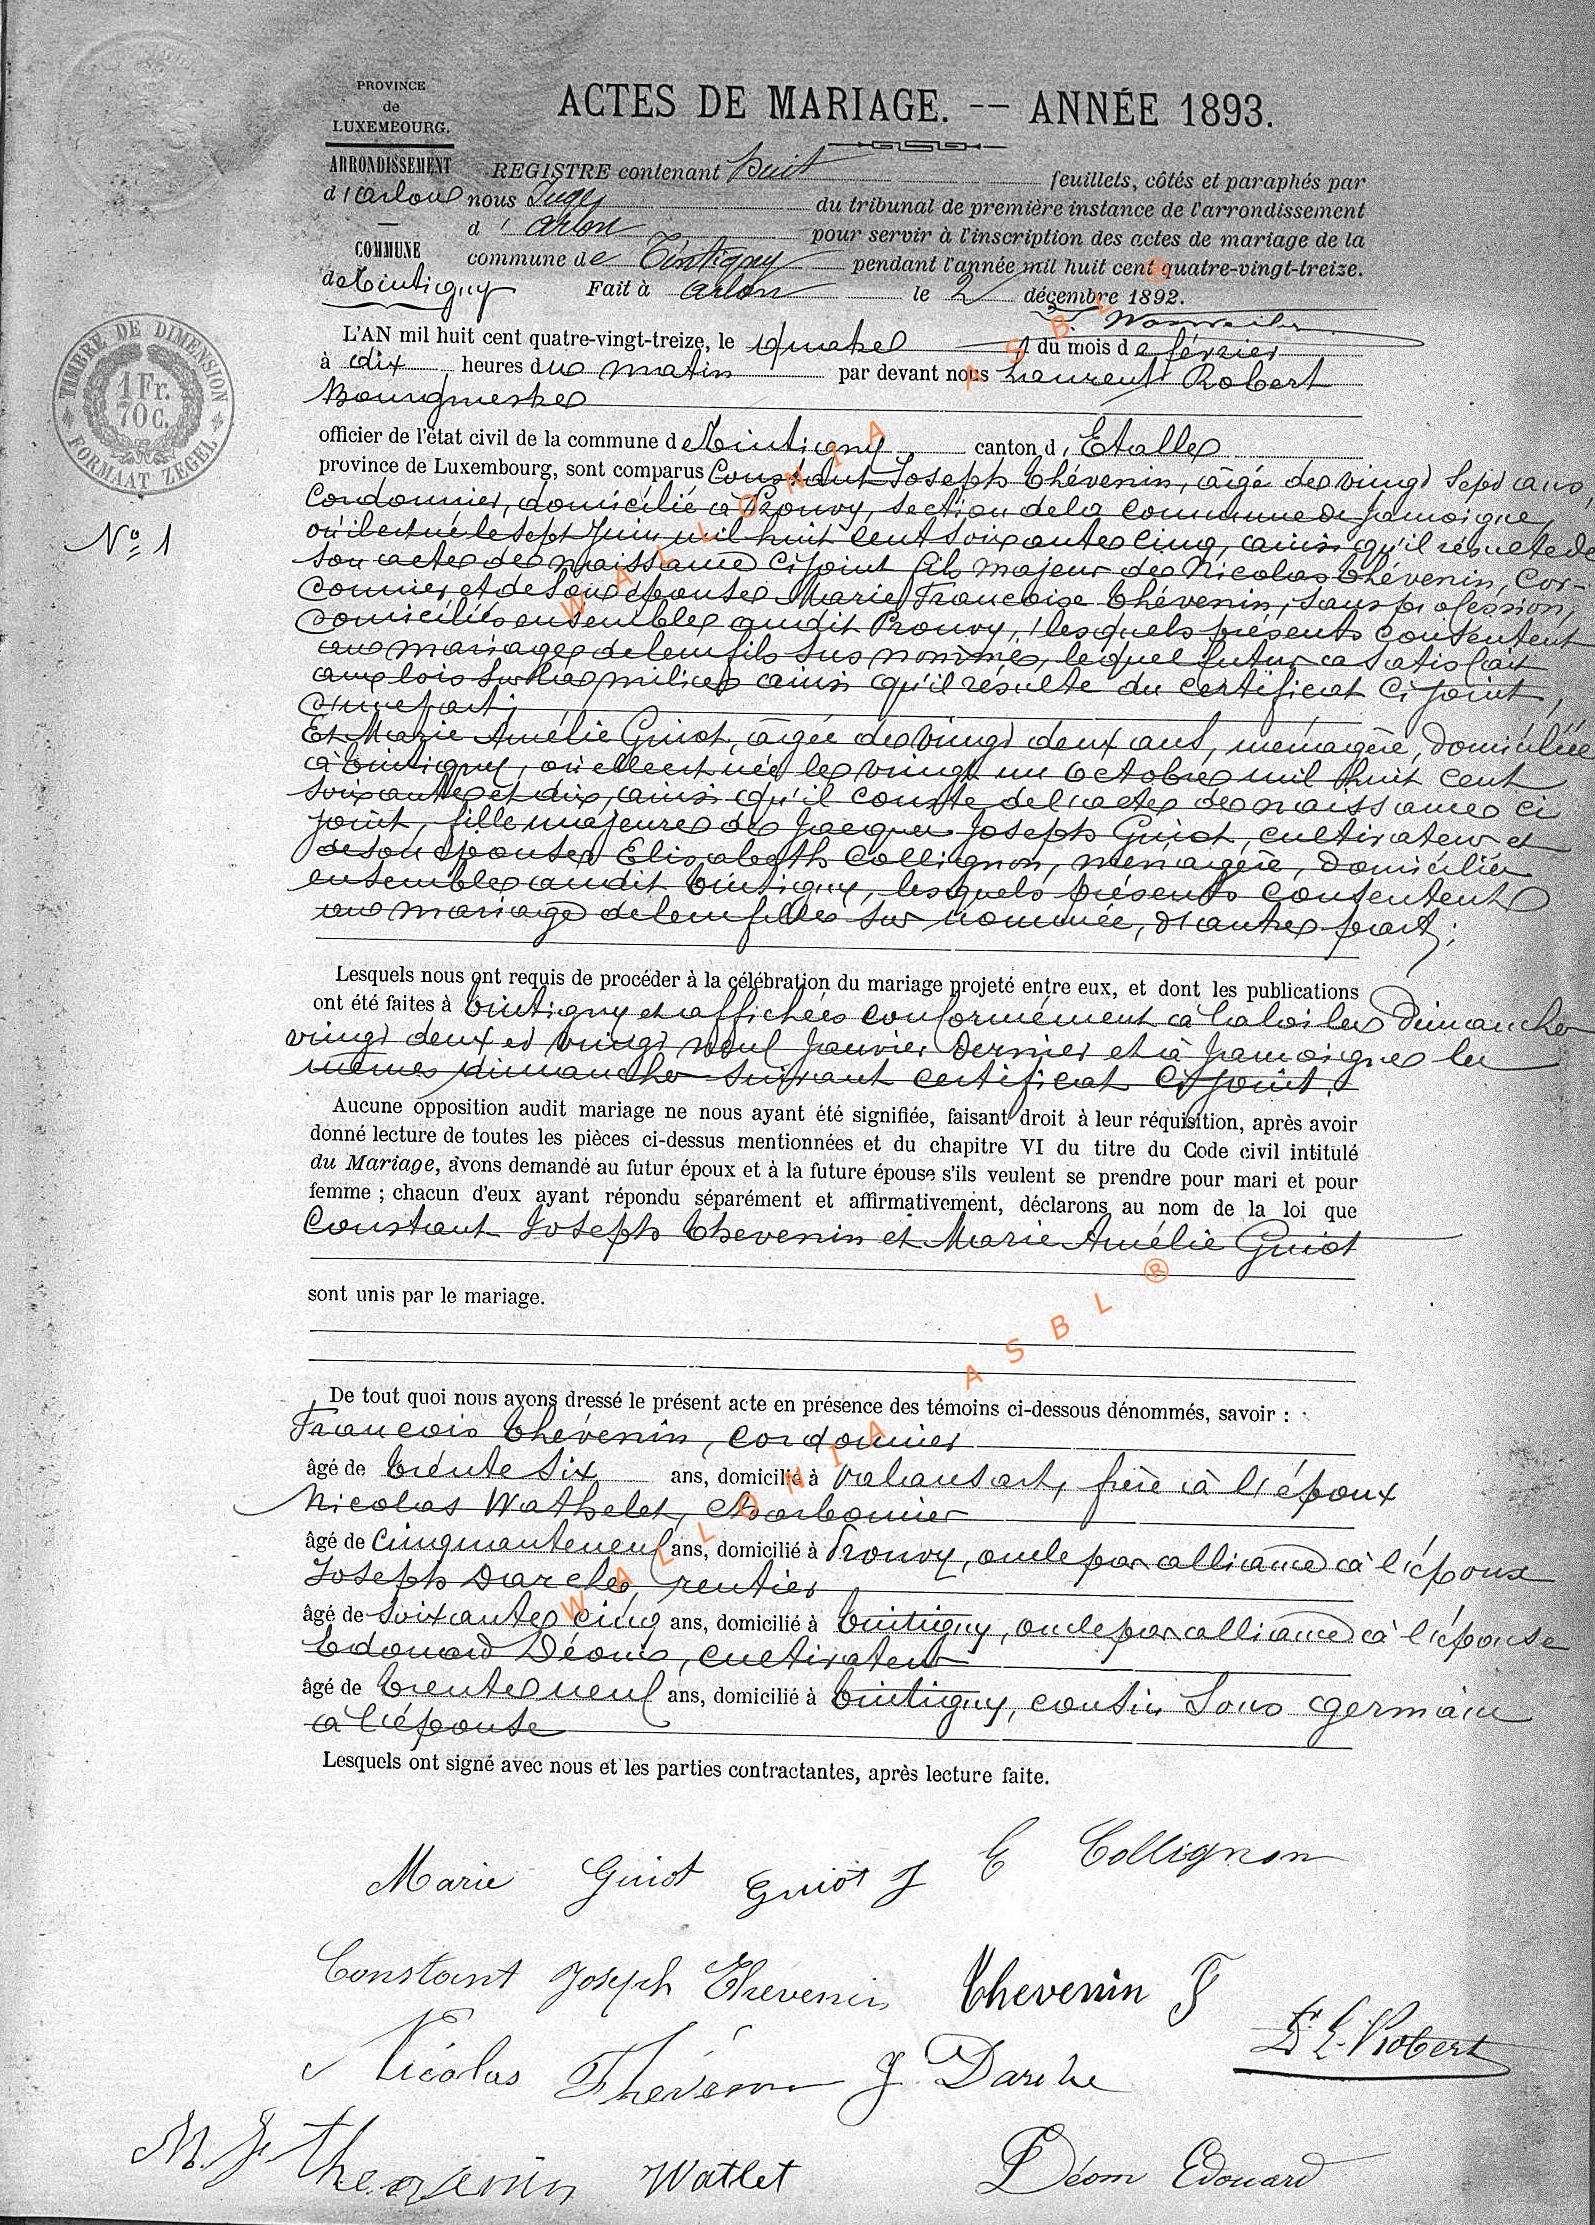 PROVINCE
de
LUXEMBOURG.
ARRONDISSEMENT
d'Arlon
COMMUNE
de Tintigny
ACTES DE MARIAGE. -- ANNÉE 1893.
REGISTRE contenant huit feuillets, côtés et paraphés par
nous Juge du tribunal de première instance de l'arrondissement
d'Arlon pour servir à l'inscription des actes de mariage de la
commune de Tintigny pendant l'année mil huit cent quatre-vingt-treize.
Fait à Arlon le 2 décembre 1892.
TIMBRE DE DIMENSION
1 Fr.
70 C.
FORMAAT ZEGEL
No 1
L'AN mil huit cent quatre-vingt-treize, le quatre du mois de février
à dix heures du matin par devant nous Laurent Robert
Bourgmestre
officier de l'état civil de la commune de Tintigny canton d'Etalle
province de Luxembourg, sont comparus Constant Joseph Thévenin, âgé de vingt sept ans,
Cordonnier, domicilié à Prouvy, section de la commune de Jamoigne,
où il est né le sept Juin mil huit cent soixante cinq, ainsi qu'il résulte de
son acte de naissance ci joint fils majeur de Nicolas Thévenin, Cor-
donnier et de son épouse Marie Francoise Thévenin, sans profession,
domiciliés ensemble audit Prouvy, lesquels présents consentent
au mariage de leur fils sus nommé, lequel futur a satisfait
aux lois sur la milice ainsi qu'il résulte du certificat ci joint,
d'une part;
Et Marie Amélie Guiot, âgée de vingt deux ans, ménagère, domiciliée
à Tintigny, où elle est née le vingt un octobre mil huit cent
soixante et dix, ainsi qu'il conste de l'acte de naissance ci
joint, fille majeure de Jacques Joseph Guiot, cultivateur et
de son épouse Elisabeth Collignon, ménagère, domiciliés
ensemble audit Tintigny, lesquels présents consentent
au mariage de leur fille sus nommée, d'autre part;
Lesquels nous ont requis de procéder à la célébration du mariage projeté entre eux, et dont les publications
ont été faites à Tintigny et affichées conformément à la loi les Dimanches
vingt deux et vingt neuf Janvier dernier et à Jamoigne les
mêmes dimanches suivant certificat ci joint.
Aucune opposition audit mariage ne nous ayant été signifiée, faisant droit à leur réquisition, après avoir
donné lecture de toutes les pièces ci-dessus mentionnées et du chapitre VI du titre du Code civil intitulé
du Mariage, avons demandé au futur époux et à la future épouse s'ils veulent se prendre pour mari et pour
femme ; chacun d'eux ayant répondu séparément et affirmativement, déclarons au nom de la loi que
Constant Joseph Thevenin et Marie Amélie Guiot
sont unis par le mariage.
De tout quoi nous avons dressé le présent acte en présence des témoins ci-dessous dénommés, savoir :
Francois Thévenin, cordonnier
âgé de trente six ans, domicilié à Valansart, frère à l'époux
Nicolas Wathelet, Charbonnier
âgé de cinquante neuf ans, domicilié à Prouvy, oncle par alliance à l'époux
Joseph Darche, rentier
âgé de soixante cinq ans, domicilié à Tintigny, oncle par alliance à l'épouse
Edouard Déom, cultivateur
âgé de trente neuf ans, domicilié à Tintigny, cousin sous germain
à l'épouse
Lesquels ont signé avec nous et les parties contractantes, après lecture faite.
Marie Guiot Guiot J E Collignon
Constant Joseph Thevenin Thevenin F
Dr L. Robert
Nicolas Thévenin J. Darche
M. F. Thevenin Watlet Déom Edouard
WALLONIA ASBL ®
WALLONIA ASBL ®